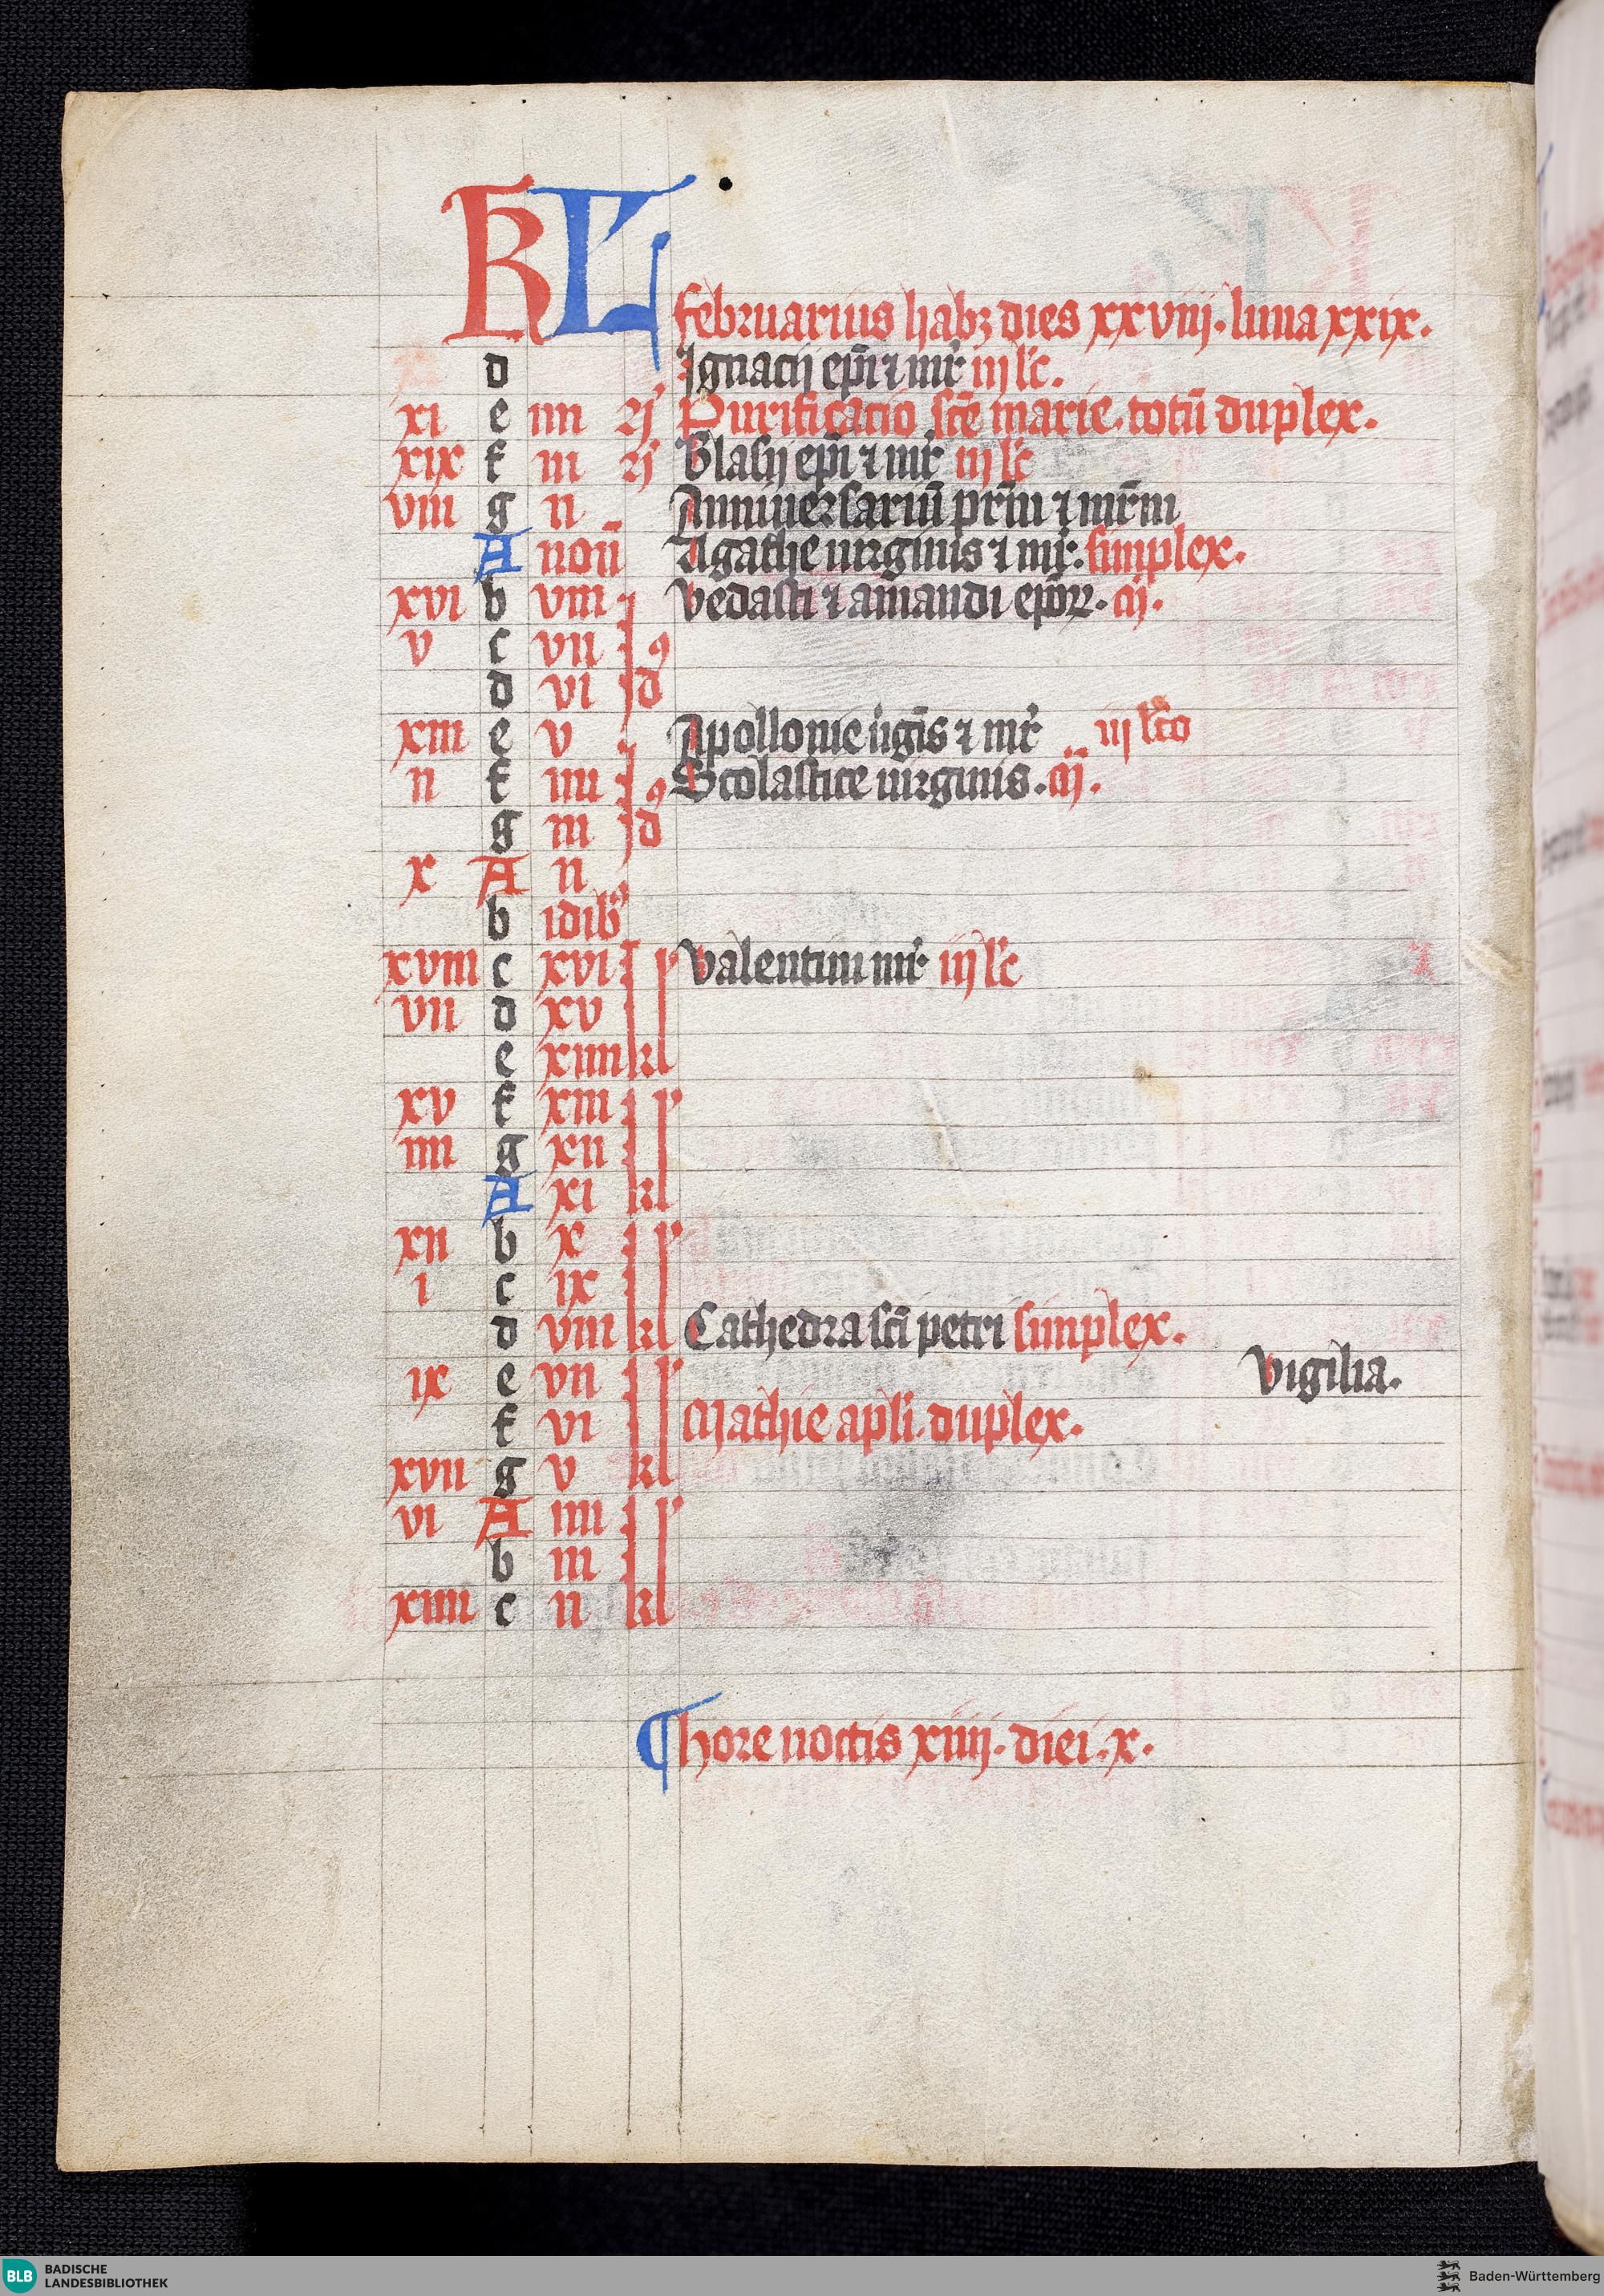 KL
februarius habꝫ dies xxviij. luna xxix.
d Ignacij ep̄i ⁊ mr̄ iij lc̄.
xi e iiii Purificacio sc̄e marie. totū duplex.
xix f iii Blasij ep̄i ⁊ mr̄ iij lc̄
viii g ii Anniuersariū pr̄m ⁊ mr̄m
A non̄ Agathe uirginis ⁊ mr̄. simplex.
xvi b viii Vedasti ⁊ amandi ep̄oꝝ. cij.
v c vii
d vi id
xiii e v Apollonie uīgis ⁊ mr̄ iij lc̄o
ii f iiii Scolastice uirginis. cij.
g iii id
x A ii
b idibꝰ
xviii c xvi Valentini mr̄ iij lc̄
vii d xv
e xiiii kl
xv f xiii
iiii g xii
A xi kl
xii b x
i c ix
d viii kl Cathedra sc̄i petri simplex.
ix e vii Vigilia.
f vi Mathie apl̄i. duplex.
xvii g v kl
vi A iiii
b iii
xiiii c ii kl
¶ hore noctis xiiij. diei. x.
BLB BADISCHE
LANDESBIBLIOTHEK
Baden-Württemberg